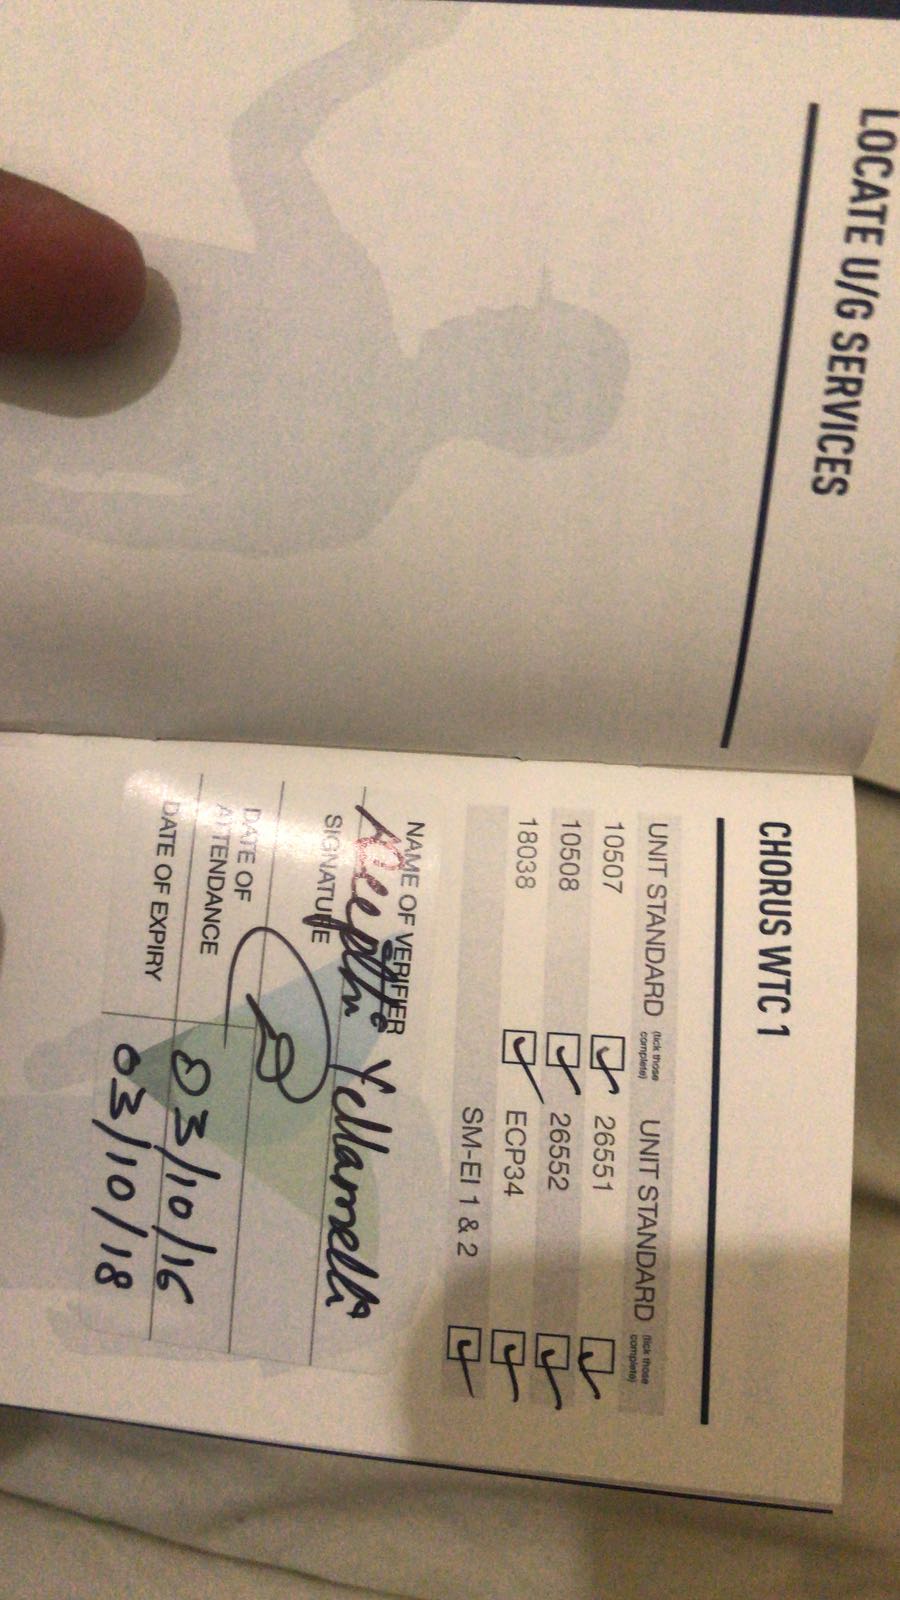 LOCATE U/G SERVICES
CHORUS WTC 1
UNIT STANDARD (tick those complete) UNIT STANDARD (tick those complete)
10507 26551
10508 26552
18038 ECP34
SM-EI 1 & 2
NAME OF VERIFIER
Deepthi Yellamelli
SIGNATURE
DATE OF ATTENDANCE 03/10/16
DATE OF EXPIRY 03/10/18